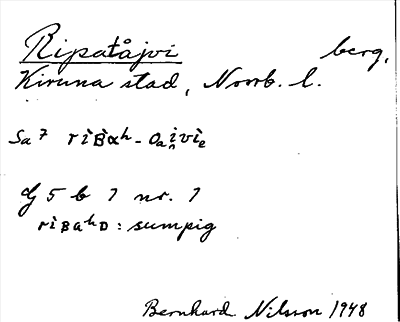 Ripatåjvi berg,
Kiruna stad, Norrb. l.
Sa 7 rìʙ̀ɑʰ-oₐi̭vìₑ
G 5 b 7 nr. 7
rìʙaʰᴅ : sumpig
Bernhard Nilsson 1948